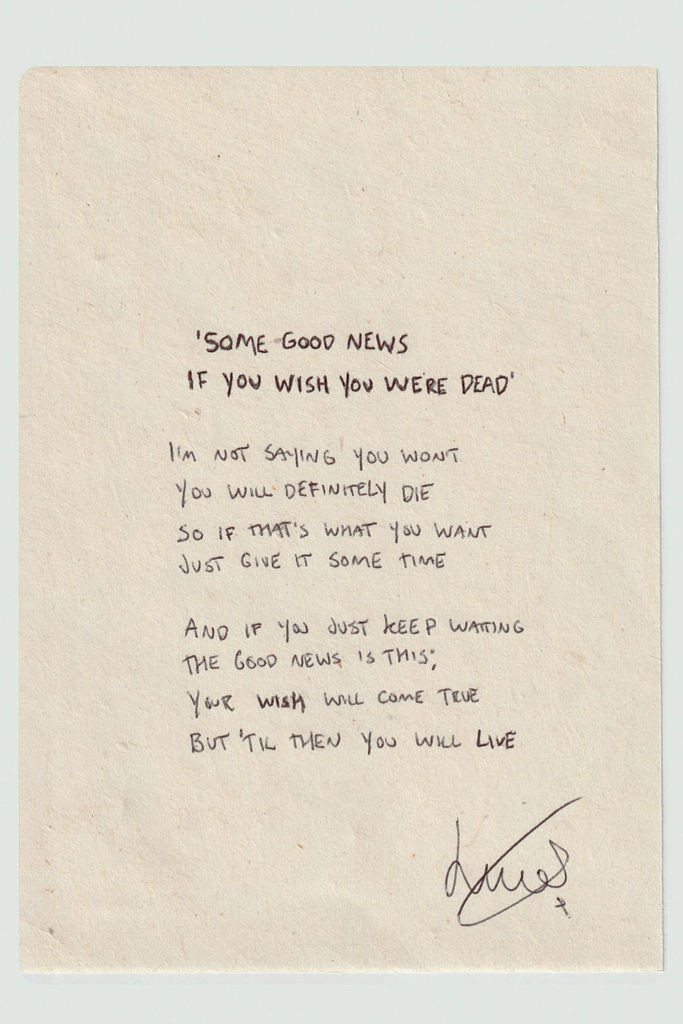 'SOME GOOD NEWS
IF YOU WISH YOU WERE DEAD'
I'M NOT SAYING YOU WONT
YOU WILL DEFINITELY DIE
SO IF THAT'S WHAT YOU WANT
JUST GIVE IT SOME TIME
AND IF YOU JUST KEEP WAITING
THE GOOD NEWS IS THIS;
YOUR WISH WILL COME TRUE
BUT 'TIL THEN YOU WILL LIVE